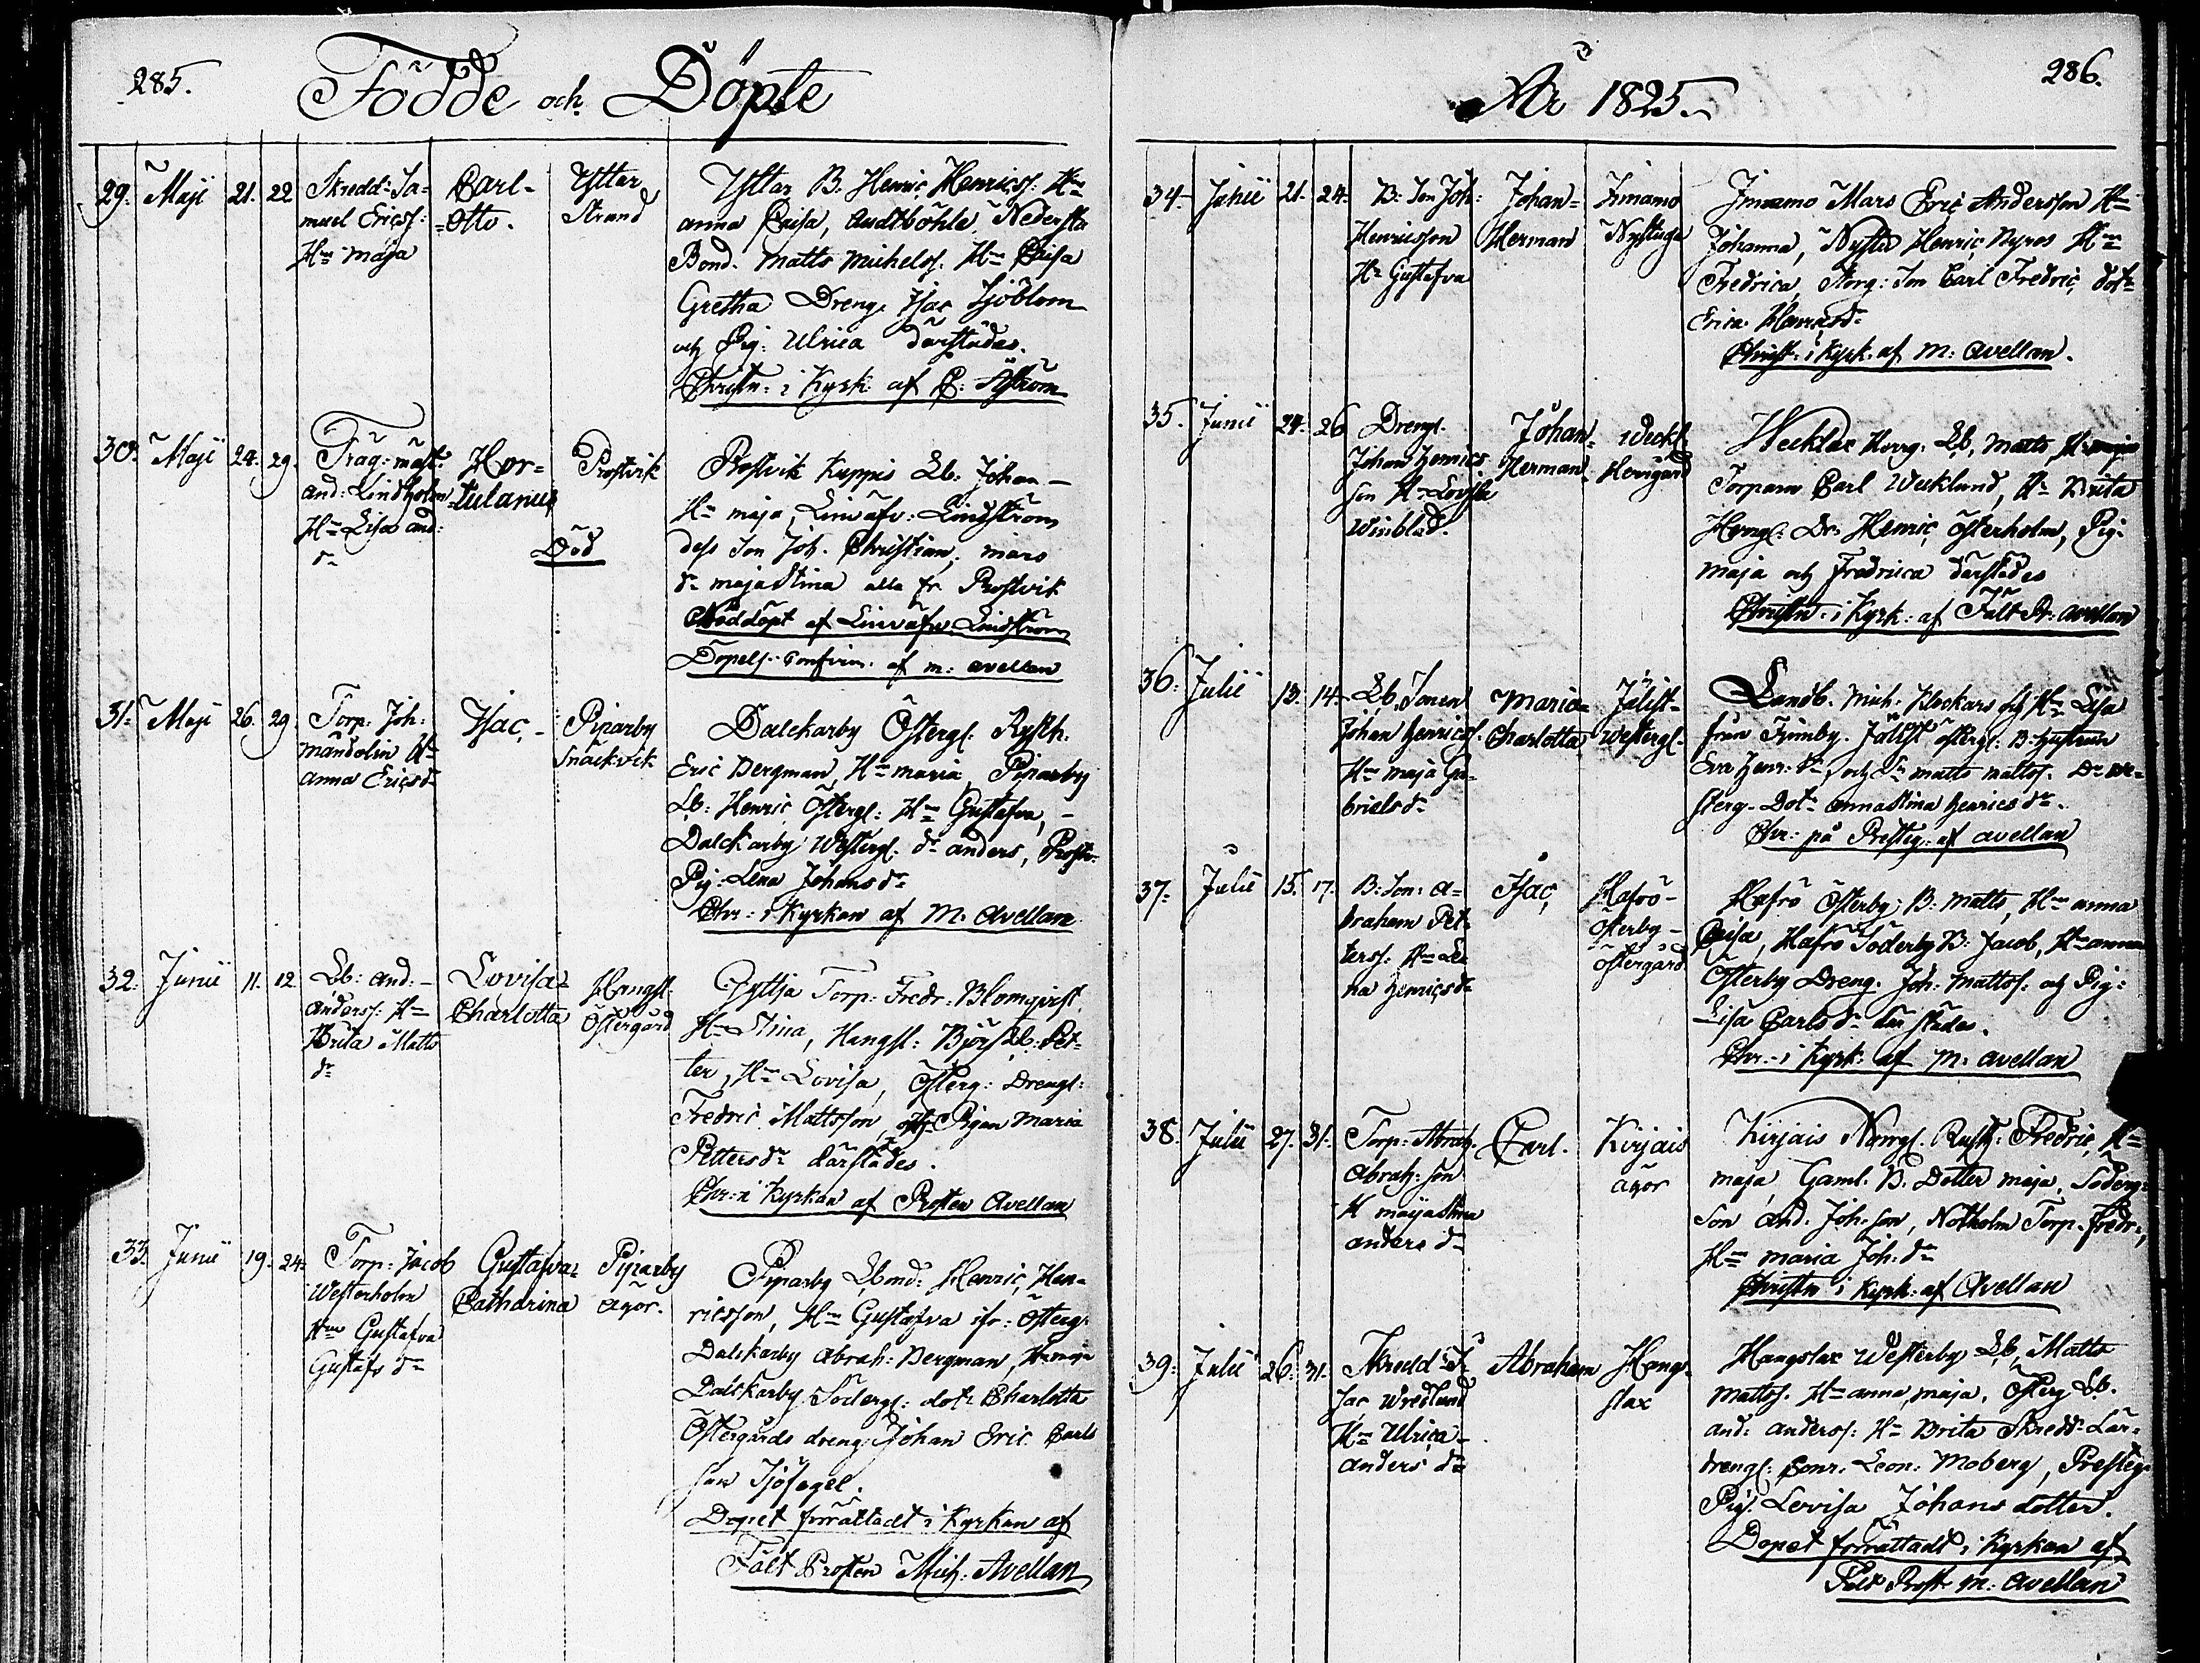 285.
Födde och Döpte
29. Maji 21. 22
Skredd: Sa=
muel Ericss:
Hu Maja
Carl-
Otto.
Ytter
Strand
Yttar B. Henric Henricss: Hu
anna Caisa,
Bond. Matts Michelss. Hu Caisa
Gretha Dreng. Isac Sjöblom
och Pig: Ulrica därstädes.
Christn: i Kyrk: af
30. Maji 24. 29.
and: Lindholm
Hu Lisa and:
dr
Hor=
tulanus
Prostvik
Död
Prostvik Kuppis Lb: Johan -
Hu Maja, Lindström
dess Son Joh. Christian,
dr Maja Stina alla fr. Prostvik
Nöddöpt af Lindström
Döpels. Confirm. af M: Avellan
31. Maji 26. 29
Torp: Joh:
Mandolin Hu
anna Ericsdr
Isac, -
Piparby
Snäckvik
Dalckarby Östergl. Rysth.
Eric Bergman, Hu Maria, Piparby
Lb: Henric Östergl: Hu Gustafva, -
Dalckarby Westergl. dr anders,
Pig: Lena Johansdr
Chr: i Kyrkan af M: Avellan
32. Junii 11. 12
Lb: and: -
anderss: Hu
Brita Matts
dr
Lovisa=
Charlotta
Hangsl.
Östergård
Gyttja Torp: Fredr: Blomqvist
Hu Stina, Hangsl: Lb: Pet=
ter, Hu Lovisa, Österg: Drengl:
Fredric Mattsson, och Pigan Maria
Pettersdr därstädes.
Chr: i Kyrkan af Prosten Avellan
33. Junii 19. 24.
Torp: Jacob
Westerholm
Hu Gustafva
Gustafsdr
Gustafva=
Catharina
Piparby
ägor.
Piparby Lbond: Henric Hen=
ricsson, Hu Gustafva Österg:
Dalskarby Abrah: Bergman,
Dalskarby Södergl: dotr Charlotta
Östergårds dreng: Johan Eric Carls
son Sjösegel.
Dopet förrättadt i Kyrkan af
Fält Prosten Mich. Avellan
286.
År 1825.
34. Junii 21. 24.
B: Son Joh:
Henricsson
Hu Gustafva
Johan=
Herman
Finnamo
Nystuga
Finnamo Mars Eric Andersson Hu
Johanna, Nystu Henric Hu
Fredrica, Son Carl Fredric, dotr
Erica Henricsdr
Christ: i Kyrk. af M: Avellan.
35. Junii 24. 26
Drengl.
Johan Henrics
son Hu Lovisa
Winblad.
Johan
Herman
Weckl.
Wecklax Lb. Matts,
Torparn Carl Wecklund, Hu Brita
Dr. Henric Österholm, Pig:
Maja och Fredrica därstädes
Christn: i Kyrk: af Fält Pr: Avellan
36. Julii 13. 14.
Lb. Sonen
Johan Henricss.
Hu Maja Ga=
brielsdr
Maria=
Charlotta
Jälist-
Westergl-
Landb. Mich. Klockars och Hu Lisa
från Finnby. Jälist östergl: B: hustrun
Eva Henr: dr, och Matts Mattss. We=
sterg. Dotr annastina henricsdr.
Chr: på Prestg: af Avellan
37. Julii 15. 17.
B: Son: A=
braham Pet=
terss: Hu Le=
na Henricsdr
Isac,
Hafrö-
österby-
östergård
Hafrö Österby: B: Matts, Hu anna
Caisa, Hafrö Söderby B: Jacob, Hu anna
Österby Dreng. Joh: Mattss. och Pig:
Lisa Carlsdr därstädes.
Chr. i Kyrk: af M: Avellan
38. Julii 27. 31.
Torp: Abrah.
Abrah: son
H Majastina
andersdr
Carl.
Kirjais
ägor
Kirjais Rusth: Fredric, Hu
Maja, Gaml. B. Dotter Maja, Söderg:
Son And. Joh: son, Notholm Torp. Fredr.,
Hu Maria Joh: dr
Christn i Kyrk: af Avellan
39. Julii 26. 31.
Skredd: I=
sac Wredlund
Hu Ulrica-
andersdr
Abraham
Hang-
slax
Hangslax Westerby Lb, Matts
Mattss. Hu anna, Maja, Österg Lb.
And: anderss: Hu Brita Skredd: Lär=
drengl: Leon: Moberg, Presteg:
Pig. Lovisa Johans dotter.
Dopet förrättadt i Kyrkan af
Fält Prost M: Avellan